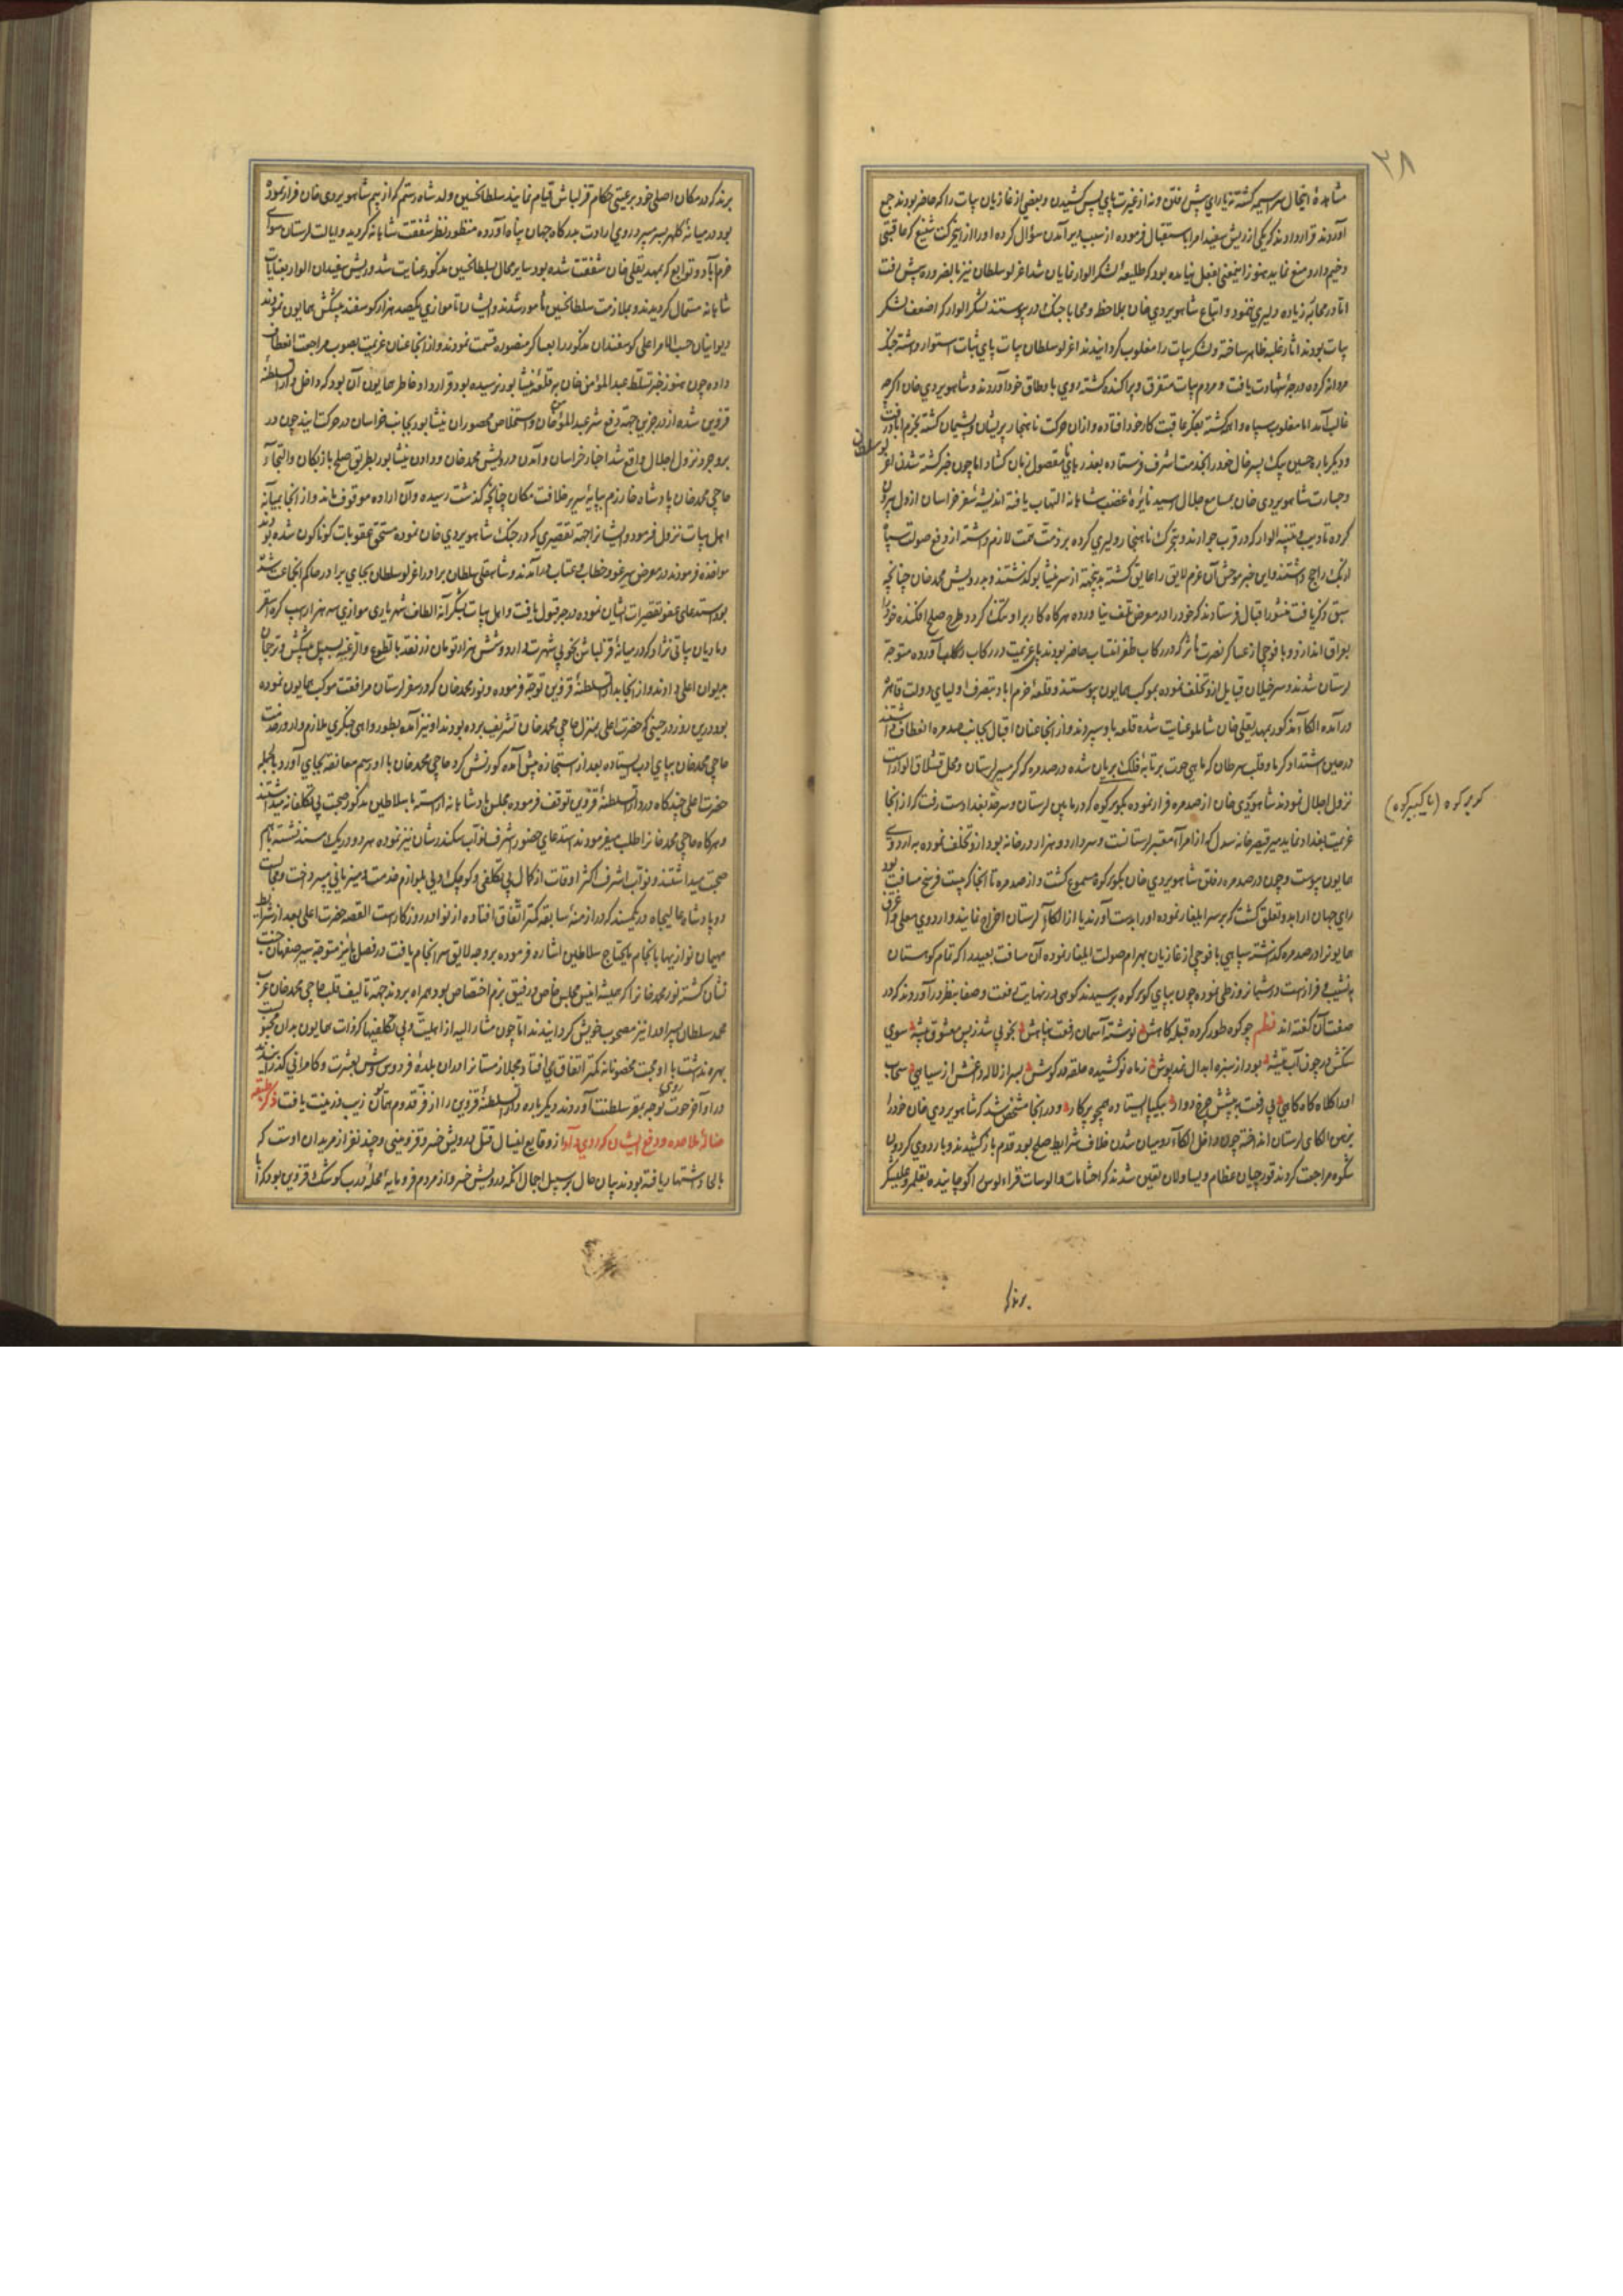 ۲۸
مشاهدهٔ اینحال سراسیمه گشته نه یارای پیش رفتن و نه از غیرت پای پس کشیدن و بعضی از غازیان بیات را که حاضر بودند جمع
آوردند قرار دادند که یکی از ریش سفیدان را باستقبال فرموده از سبب دیر آمدن سؤال کرده او را از این حرکت شنیع که عاقبتی
وخیم دارد منع نماید هنوز اینمعنی بفعل نیامده بود که طلیعهٔ لشکر الوار نمایان شد اغرلو سلطان نیز بالضروره پیش رفت
اما در محاربه زیاده دلیری ننمود و اتباع شاهویردی خان بی ملاحظه و محابا جنگ در پیوستند لشکر الوار که اضعف لشکر
بیات بودند اثار غلبه ظاهر ساخته و لشکر بیات را مغلوب گردانیدند اغرلو سلطان بیات پای ثبات استوار داشته جنگ
مردانه کرده درجهٔ شهادت یافت و مردم بیات متفرق و پراکنده گشته روی باوطان خود آوردند و شاهویردی خان اگرچه
غالب آمد اما مغلوب سپاه واهمه گشته بفکر عاقبت کار خود افتاده و از آن حرکت ناهنجار پریشان و پشیمان گشته بخرم اباد رفت
و دیگر باره حسین بیک پسر خال خود را بخدمت اشرف فرستاده بعذرهای نا معقول زبان گشاد اما چون خبر کشته شدن اغر
لو سلطان
و جسارت شاهویردی خان بمسامع جلال رسید نایرهٔ غضب شاهانه التهاب یافته اندیشهٔ سفر خراسان از دل بیرون
کرده تادیب و تنبیه الوار که در قرب جوارند و بتحرک ناهنجار دلیری کرده بر ذمت همت لازم داشته از دفع صولت سپاه
ازبک راجح داشتند و این خبر موحش آن عزم لایق را عایق گشته بدینجهة از سر نیشابور گذشتند و بدرویش محمد خان چنانچه
سبق ذکر یافت منشور اقبال فرستادند که خود را در معرض تلف نیاورده هرگاه کار بر او تنگ گردد طرح صلح افکنده خود را
بعراق اندازد و با فوجی از عساکر نصرت مآثر که در رکاب ظفر انتساب حاضر بودند پای عزیمت در رکاب آورده متوجه
لرستان شدند و سرخیلان قبایل از او تخلف نموده بموکب همایون پیوستند و قلعهٔ خرم اباد بتصرف اولیای دولت قاهره
درآمده الکاء مذکور بمهدیقلی خان شاملو عنایت شده قلعه باو سپردند و از انجا عنان اقبال بجانب صدمره انعطاف داشتند
در عین اشتداد گرما و قلب سرطان که ماهی حوت بر تابهٔ فلک بریان شده در صدمره که گرمسیر لرستان و محل قشلاق الوار است
نزول اجلال نمودند شاهویردی خان از صدمره فرار نموده بکوبر کوه که در مابین لرستان و سرحد بغداد است رفت که از انجا
کوبر کوه (یا کبیر کوه)
عزیمت بغداد نماید میر قیصر خانه سدل که از امرآء معتبر لرستانست و سردار دو هزار در خانه بود از او تخلف نموده به اردوی
همایون پیوست و چون در صدمره رفتن شاهویردی خان بکوبر کوه مسموع گشت و از صدمره تا انجا که بیست فرسخ مسافت بود
رای جهان ارا بدو تعلق گشت که بر سر او ایلغار نموده او را بدست آورند یا از الکاء لرستان اخراج نمایند و اردوی معلی و اغرق
همایون را در صدمره گذاشته سپاهی با فوجی از غازیان بهرام صولت ایلغار نموده آن مسافت بعیده را که تمام کوهستان
و نشیب و فراز است در شبانروز طی نموده چون بپای کوبر کوه رسیدند کوهی در نهایت رفعت و صفا بنظر درآوردند که در
صفت آن گفته اند نظم چو کوه طور کرده قبله گاهش نوشته آسمان رفعت پناهش بخوبی شد زبس معشوق بیشه سوی
سنگش در چون آب تیشه بود از سبزه ابدال نمد پوش ز ماه نو کشیده حلقه در گوش بسر از لاله و داغش از سیاهی سحاب
او را کلاه گاه گاهی پی رفعت به پیشش چرخ دوار بیکپا ایستاده همچو پرکار و در انجا مشخص شد که شاهویردی خان خود را
بزمین الکای لرستان انداخته چون داخل الکاء رومیان شدن خلاف شرایط صلح بود قدم باز کشیدند و باردوی گردون
شکوه مراجعت کردند قورچیان عظام و یساولان تعیین شدند که احشامات و الوسات قرا الوس را کوچانیده بقلمرو علیشکر
برند
برند که در مکان اصلی خود برعیتی حکام قزلباش قیام نمایند سلطانحسین ولد شاه رستم که از بیم شاهویردی خان فرار نموده
بود در میانهٔ کلهر بسر میبرد روی ارادت بدرگاه جهان پناه آورده منظور نظر شفقت شاهانه گردید و ایالت لرستان سوای
خرم آباد و توابع که بمهدیقلی خان شفقت شده بود سایر محال بسلطانحسین مذکور عنایت شد و ریش سفیدان الوار بعنایات
شاهانه مستمال گردیدند و بملازمت سلطانحسین مأمور شدند و ایشان تا موازی یکصد هزار گوسفند پیشکش همایون نمودند
دیوانیان حسب الامر اعلی گوسفندان مذکور را بعساکر منصوره قسمت نمودند و از انجا عنان عزیمت بصوب مراجعت انعطاف
داده چون هنوز خبر تسلط عبدالمؤمن خان بر قلعهٔ نیشابور نرسیده بود قرارداد خاطر همایون آن بود که داخل دار السلطنهٔ
قزوین نشده از در جزین جهة دفع شر عبدالمؤمنخان و استخلاص محصوران نیشابور بجانب خراسان در حرکت آیند چون در
بروجرد نزول اجلال واقع شد اخبار خراسان و آمدن درویش محمد خان و دادن نیشابور بطریق صلح بازبکان و التجاء
حاجی محمد خان پادشاه خوارزم بپایهٔ سریر خلافت مکان چنانچه گذشت رسیده و آن اراده موقوف ماند و از انجا بمیانه
ایل بیات نزول فرمود و ایشانرا جهة تقصیری که در جنگ شاهویردی خان نموده مستحق عقوبات گوناگون شده بودند
مواخذه فرمودند در معرض خطاب و عتاب درآمدند و شاهقلی سلطان برادر اغرلو سلطان بجای برادر حاکم انجماعت شد
موازی سه هزار اسپ کره
و مادیان بیاتی نژاد که در میانهٔ قزلباش بخوبی شهرت دارد و شش هزار تومان زر نقد بالطوع و الرغبه بسبیل پیشکش و ترجمان
بدیوان اعلی دادند و از انجا بدار السلطنهٔ قزوین توجه فرموده و نور محمد خان که در سفر لرستان مرافقت موکب همایون نموده
بود درین روز در حینی که حضرت اعلی بمنزل حاجی محمد خان تشریف برده بودند او نیز آمده
حاجی محمد خان بپای ادب ایستاده بعد از استجازه پیش آمده کورنش کرد حاجی محمد خان با او رسم معانقه بجای آورد بالجمله
حضرت اعلی چند گاه در دار السلطنهٔ قزوین توقف فرموده مجلس پادشاهانه اراسته با سلاطین مذکور صحبت بی تکلفانه میداشتند
و هرگاه حاجی محمد خانرا طلب میفرمودند استدعای حضور اشرف نواب سکندر شان نیز نموده هر دو در یک مسند نشسته باهم
صحبت میداشتند و نواب اشرف اکثر اوقات از کمال بی تکلفی و کوچک دلی بلوازم خدمت و میزبانی میپرداخت و مجالست
دو پادشاه عالیجاه در یک مسند که در ازمنهٔ سابقه کمتر اتفاق افتاده از نوادر روزگار است القصه حضرت اعلی بعد از شرایط
مهمان نوازیها بانجام مایحتاج سلاطین اشاره فرموده بر وجه لایق سرانجام یافت در فصل پائیز متوجه سیر صفهان جنت
نشان گشته نور محمد خانرا که همیشه انیس مجلس خاص و رفیق بزم اختصاص بود همراه بردند جهة تالیف قلب حاجی محمد خان عرب
محمد سلطان پسر او را نیز مصحوب خویش گردانیدند اما چون مشار الیه از اهلیت و بی تکلفیها که ذات همایون بدان مجبولست
بهره نداشت با او صحبت مخصوصانه کمتر اتفاق می افتاد و مجملا زمستانرا در ان بلدهٔ فردوس وش بعشرت و کامرانی گذرانیده
در اواخر حوت روی توجه بمقر سلطنت آوردند و دیگر باره دار السلطنهٔ قزوین را از فر قدوم همایون زیب و زینت یافت ذکر طبقه
ضالهٔ ملاحده و دفع ایشان که روی داد از وقایع این سال قتل درویش خسرو قزوینی و چند نفر از مریدان اوست که
بالحاد اشتهار یافته بودند بیان حال بر سبیل اجمال انکه درویش خسرو از مردم فرومایهٔ محلهٔ درب کوشک قزوین بود که آبا